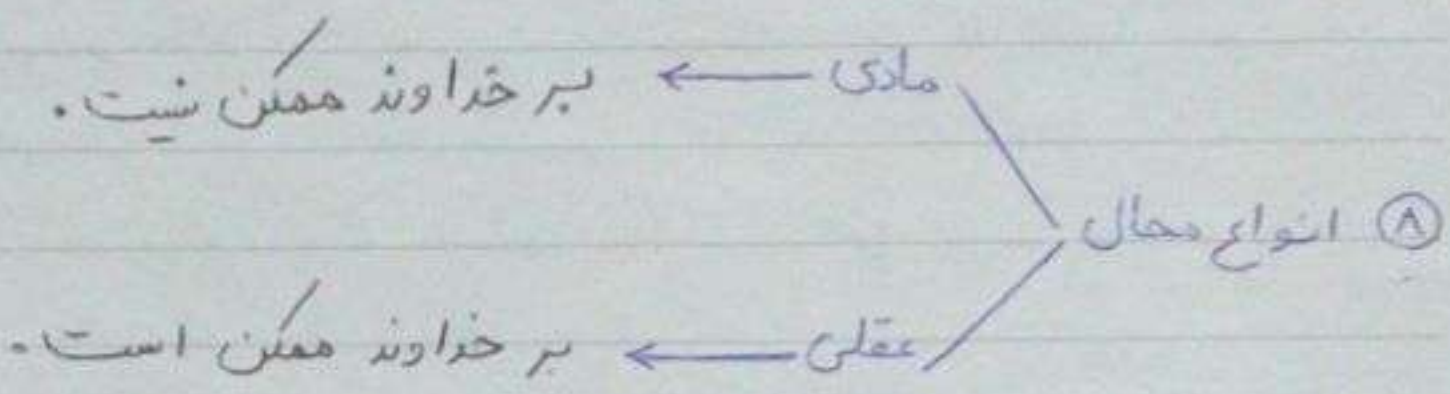 ⑧ انواع محال
مادی ← بر خداوند ممکن نیست.
عقلی ← بر خداوند ممکن است.